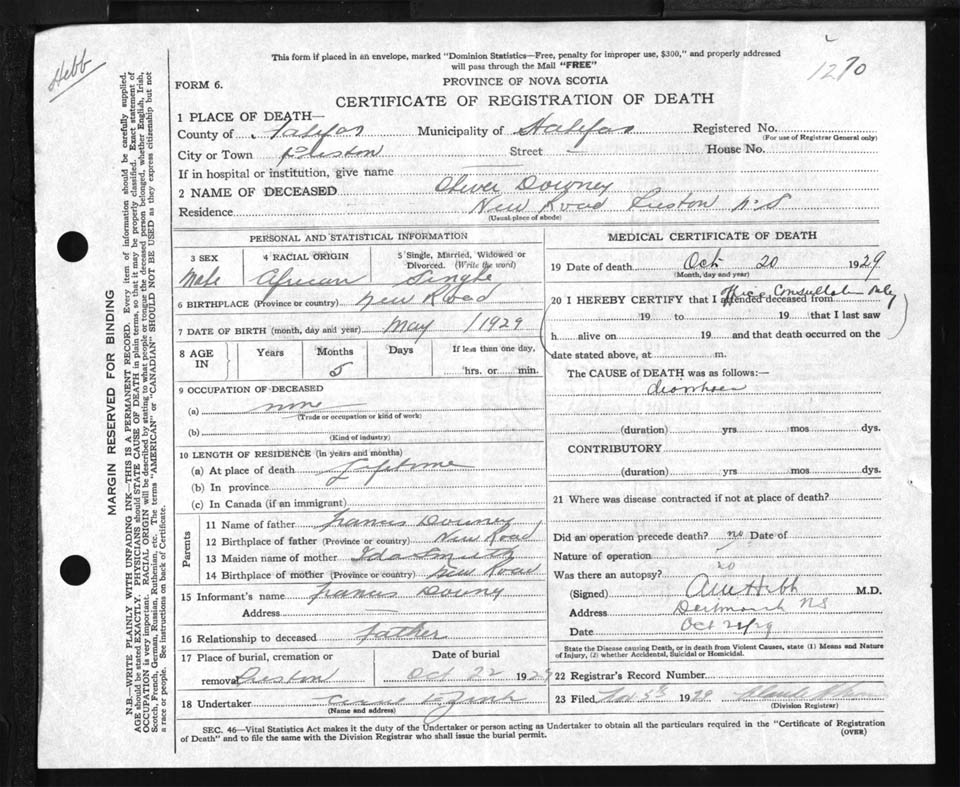 Hebb
1270
This form if placed in an envelope, marked "Dominion Statistics—Free, penalty for improper use, $300," and properly addressed
will pass through the Mail "FREE"
FORM 6.
PROVINCE OF NOVA SCOTIA
CERTIFICATE OF REGISTRATION OF DEATH
1 PLACE OF DEATH—
County of Halifax Municipality of Halifax Registered No.
(For use of Registrar General only)
City or Town Preston Street — House No.
If in hospital or institution, give name
2 NAME OF DECEASED Oliver Downey
Residence New Road Preston N.S
(Usual place of abode)
PERSONAL AND STATISTICAL INFORMATION
3 SEX 4 RACIAL ORIGIN 5 Single, Married, Widowed or
Divorced. (Write the word)
Male African Single
6 BIRTHPLACE (Province or country) New Road
7 DATE OF BIRTH (month, day and year) May 1929
8 AGE IN Years Months Days If less than one day,
5 hrs. or min.
9 OCCUPATION OF DECEASED
(a) none
(Trade or occupation or kind of work)
(b)
(Kind of industry)
10 LENGTH OF RESIDENCE (in years and months)
(a) At place of death Lifetime
(b) In province
(c) In Canada (if an immigrant)
Parents
11 Name of father Francis Downey
12 Birthplace of father (Province or country) New Road
13 Maiden name of mother Ida Smith
14 Birthplace of mother (Province or country) New Road
15 Informant's name Francis Downy
Address —
16 Relationship to deceased father
17 Place of burial, cremation or Date of burial
removal Preston Oct 22 1929
18 Undertaker
(Name and address)
MEDICAL CERTIFICATE OF DEATH
19 Date of death Oct 20 1929
(Month, day and year)
Office Consultation only
20 I HEREBY CERTIFY that I attended deceased from
19 to 19 that I last saw
h alive on 19 and that death occurred on the
date stated above, at m.
The CAUSE of DEATH was as follows:—
diarrhoea
(duration) yrs mos dys.
CONTRIBUTORY
(duration) yrs mos dys.
21 Where was disease contracted if not at place of death?
Did an operation precede death? no Date of
Nature of operation
Was there an autopsy? no
(Signed) Hebb M.D.
Address Dartmouth NS
Date Oct 22/29
State the Disease causing Death, or in death from Violent Causes, state (1) Means and Nature
of Injury, (2) whether Accidental, Suicidal or Homicidal.
22 Registrar's Record Number
23 Filed Nov 5th 1929
(Division Registrar)
SEC. 46—Vital Statistics Act makes it the duty of the Undertaker or person acting as Undertaker to obtain all the particulars required in the "Certificate of Registration
of Death" and to file the same with the Division Registrar who shall issue the burial permit.
(OVER)
MARGIN RESERVED FOR BINDING
N.B.—WRITE PLAINLY WITH UNFADING INK—THIS IS A PERMANENT RECORD. Every item of information should be carefully supplied.
AGE should be stated EXACTLY. PHYSICIANS should STATE CAUSE OF DEATH in plain terms, so that it may be properly classified. Exact statement of
OCCUPATION is very important. RACIAL ORIGIN will be described by stating to what people or tongue the deceased person belonged, whether English, Irish,
Scotch, French, German, Russian, Ruthenian, etc. The terms "AMERICAN" or "CANADIAN" SHOULD NOT BE USED as they express citizenship but not
a race or people. See instructions on back of Certificate.